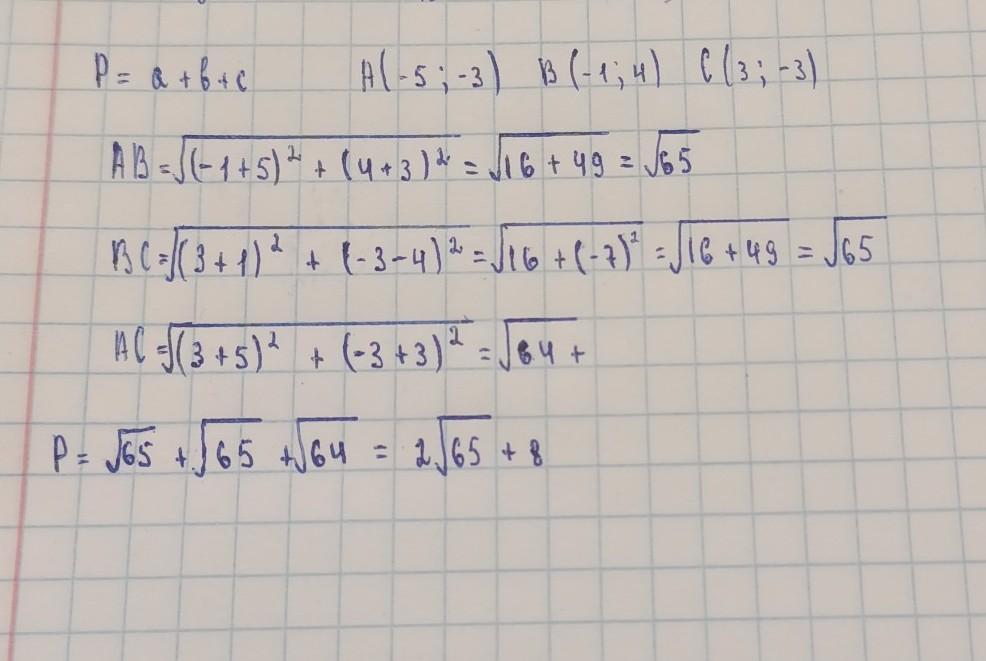 P = a + b + c A(-5; -3) B(-1; 4) C(3; -3)
AB = √((-1+5)² + (4+3)²) = √(16 + 49) = √65
BC = √((3+1)² + (-3-4)²) = √(16 + (-7)²) = √(16 + 49) = √65
AC = √((3+5)² + (-3+3)²) = √64 +
P = √65 + √65 + √64 = 2√65 + 8